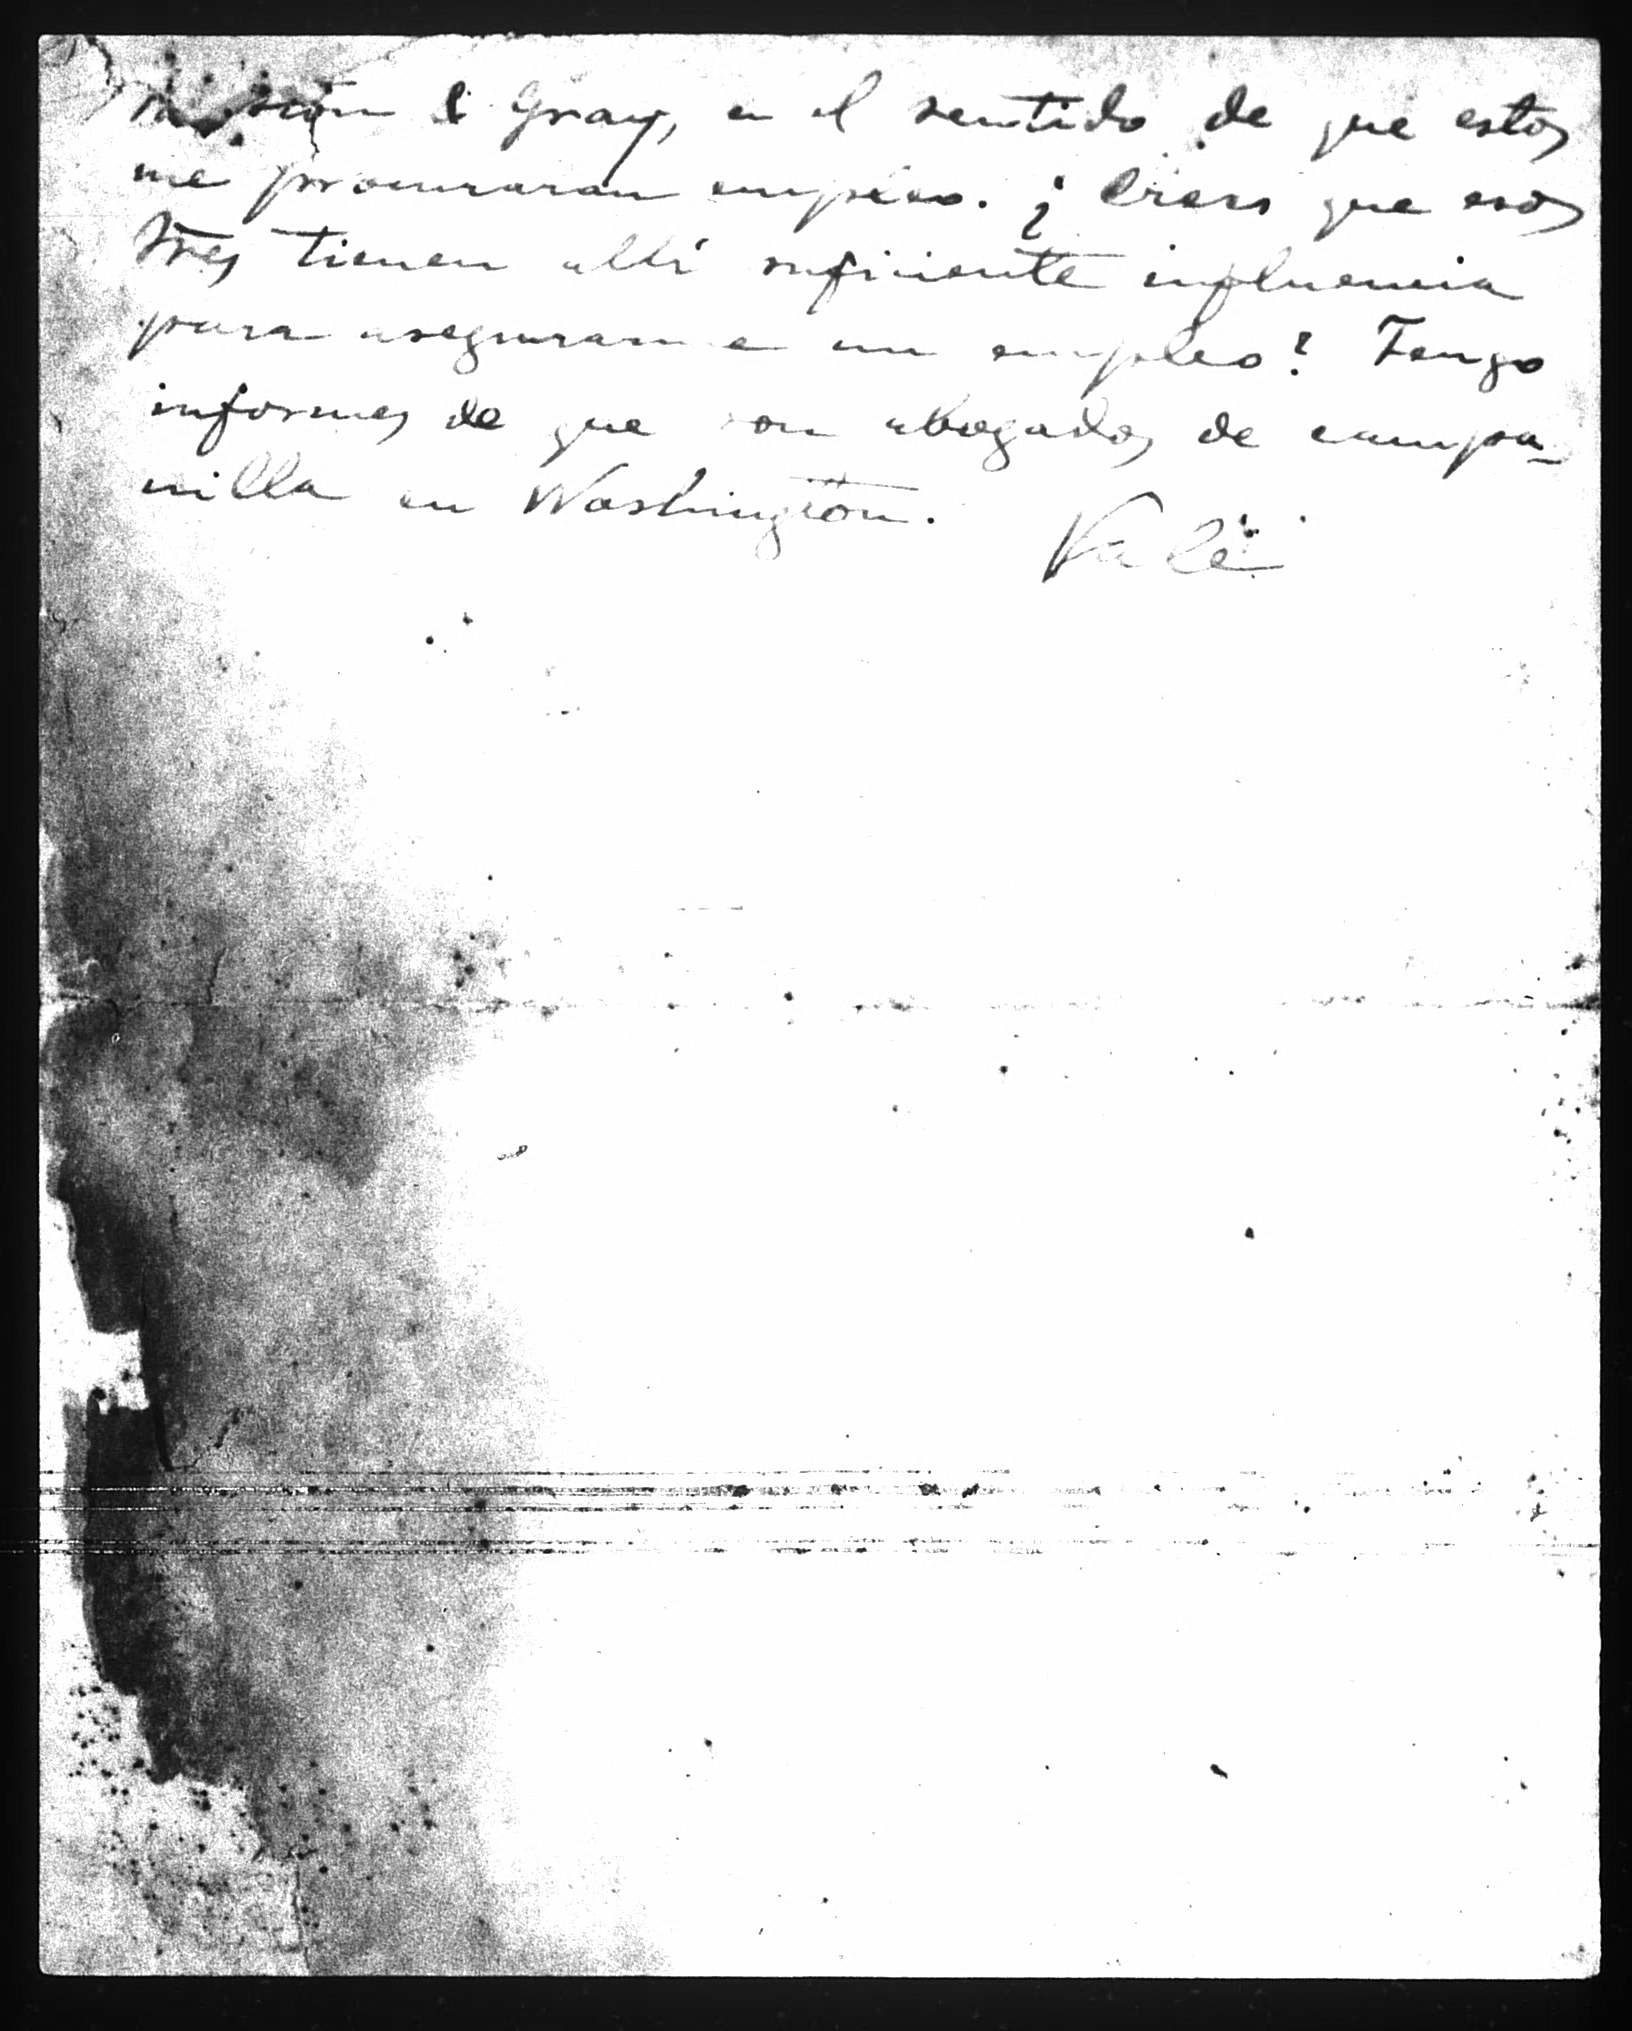 & Gray, en el sentido de que estos
me procuraran empleo. ¿Crees que esos
Sres tienen allí suficiente influencia
para asegurarme un empleo? Tengo
informes de que son abogados de campa-
nilla en Washington.
Vale